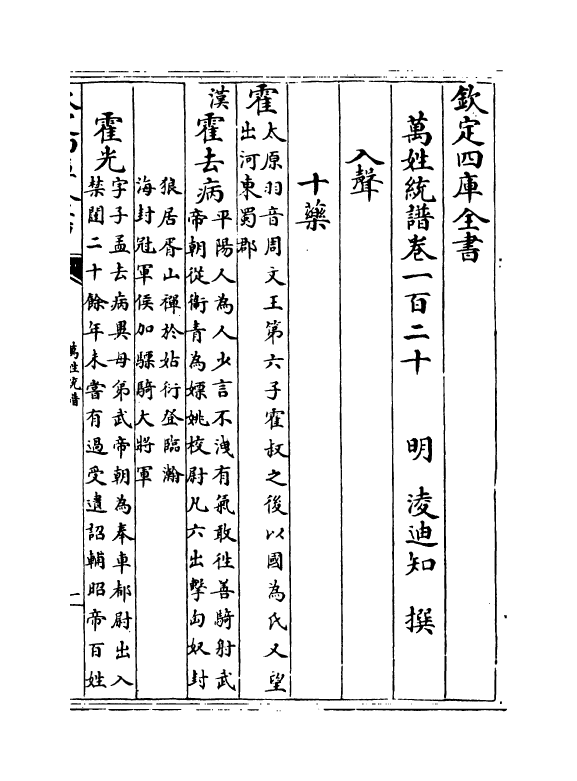 欽定四庫全書
萬姓統譜卷一百二十
明 淩迪知 撰
入聲
十藥
霍太原羽音周文王第六子霍叔之後以國為氏又望
出河東蜀郡
漢
霍去病平陽人為人少言不洩有氣敢徃善騎射武
帝朝從衛青為嫖姚校尉凡六出擊匈奴封
狼居胥山禪於姑衍登臨瀚
海封冠軍侯加驃騎大將軍
霍光字子孟去病異母弟武帝朝為奉車都尉出入
禁闥二十餘年未嘗有過受遺詔輔昭帝百姓
萬姓統譜
一